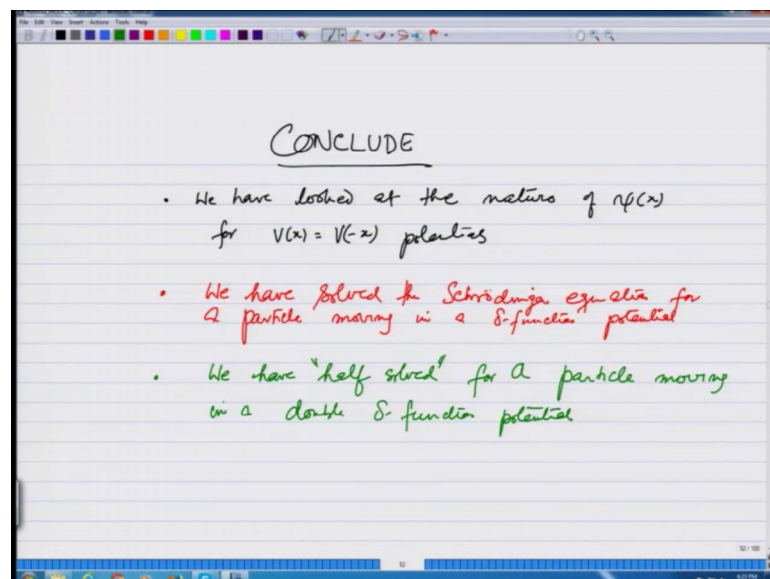 File Edit View Insert Actions Tools Help
CONCLUDE
• We have looked at the nature of ψ(x)
for V(x) = V(-x) potentials
• We have solved the Schrödinger equation for
a particle moving in a δ-function potential
• We have "half solved" for a particle moving
in a double δ-function potential
52 / 100
52
4:23 PM